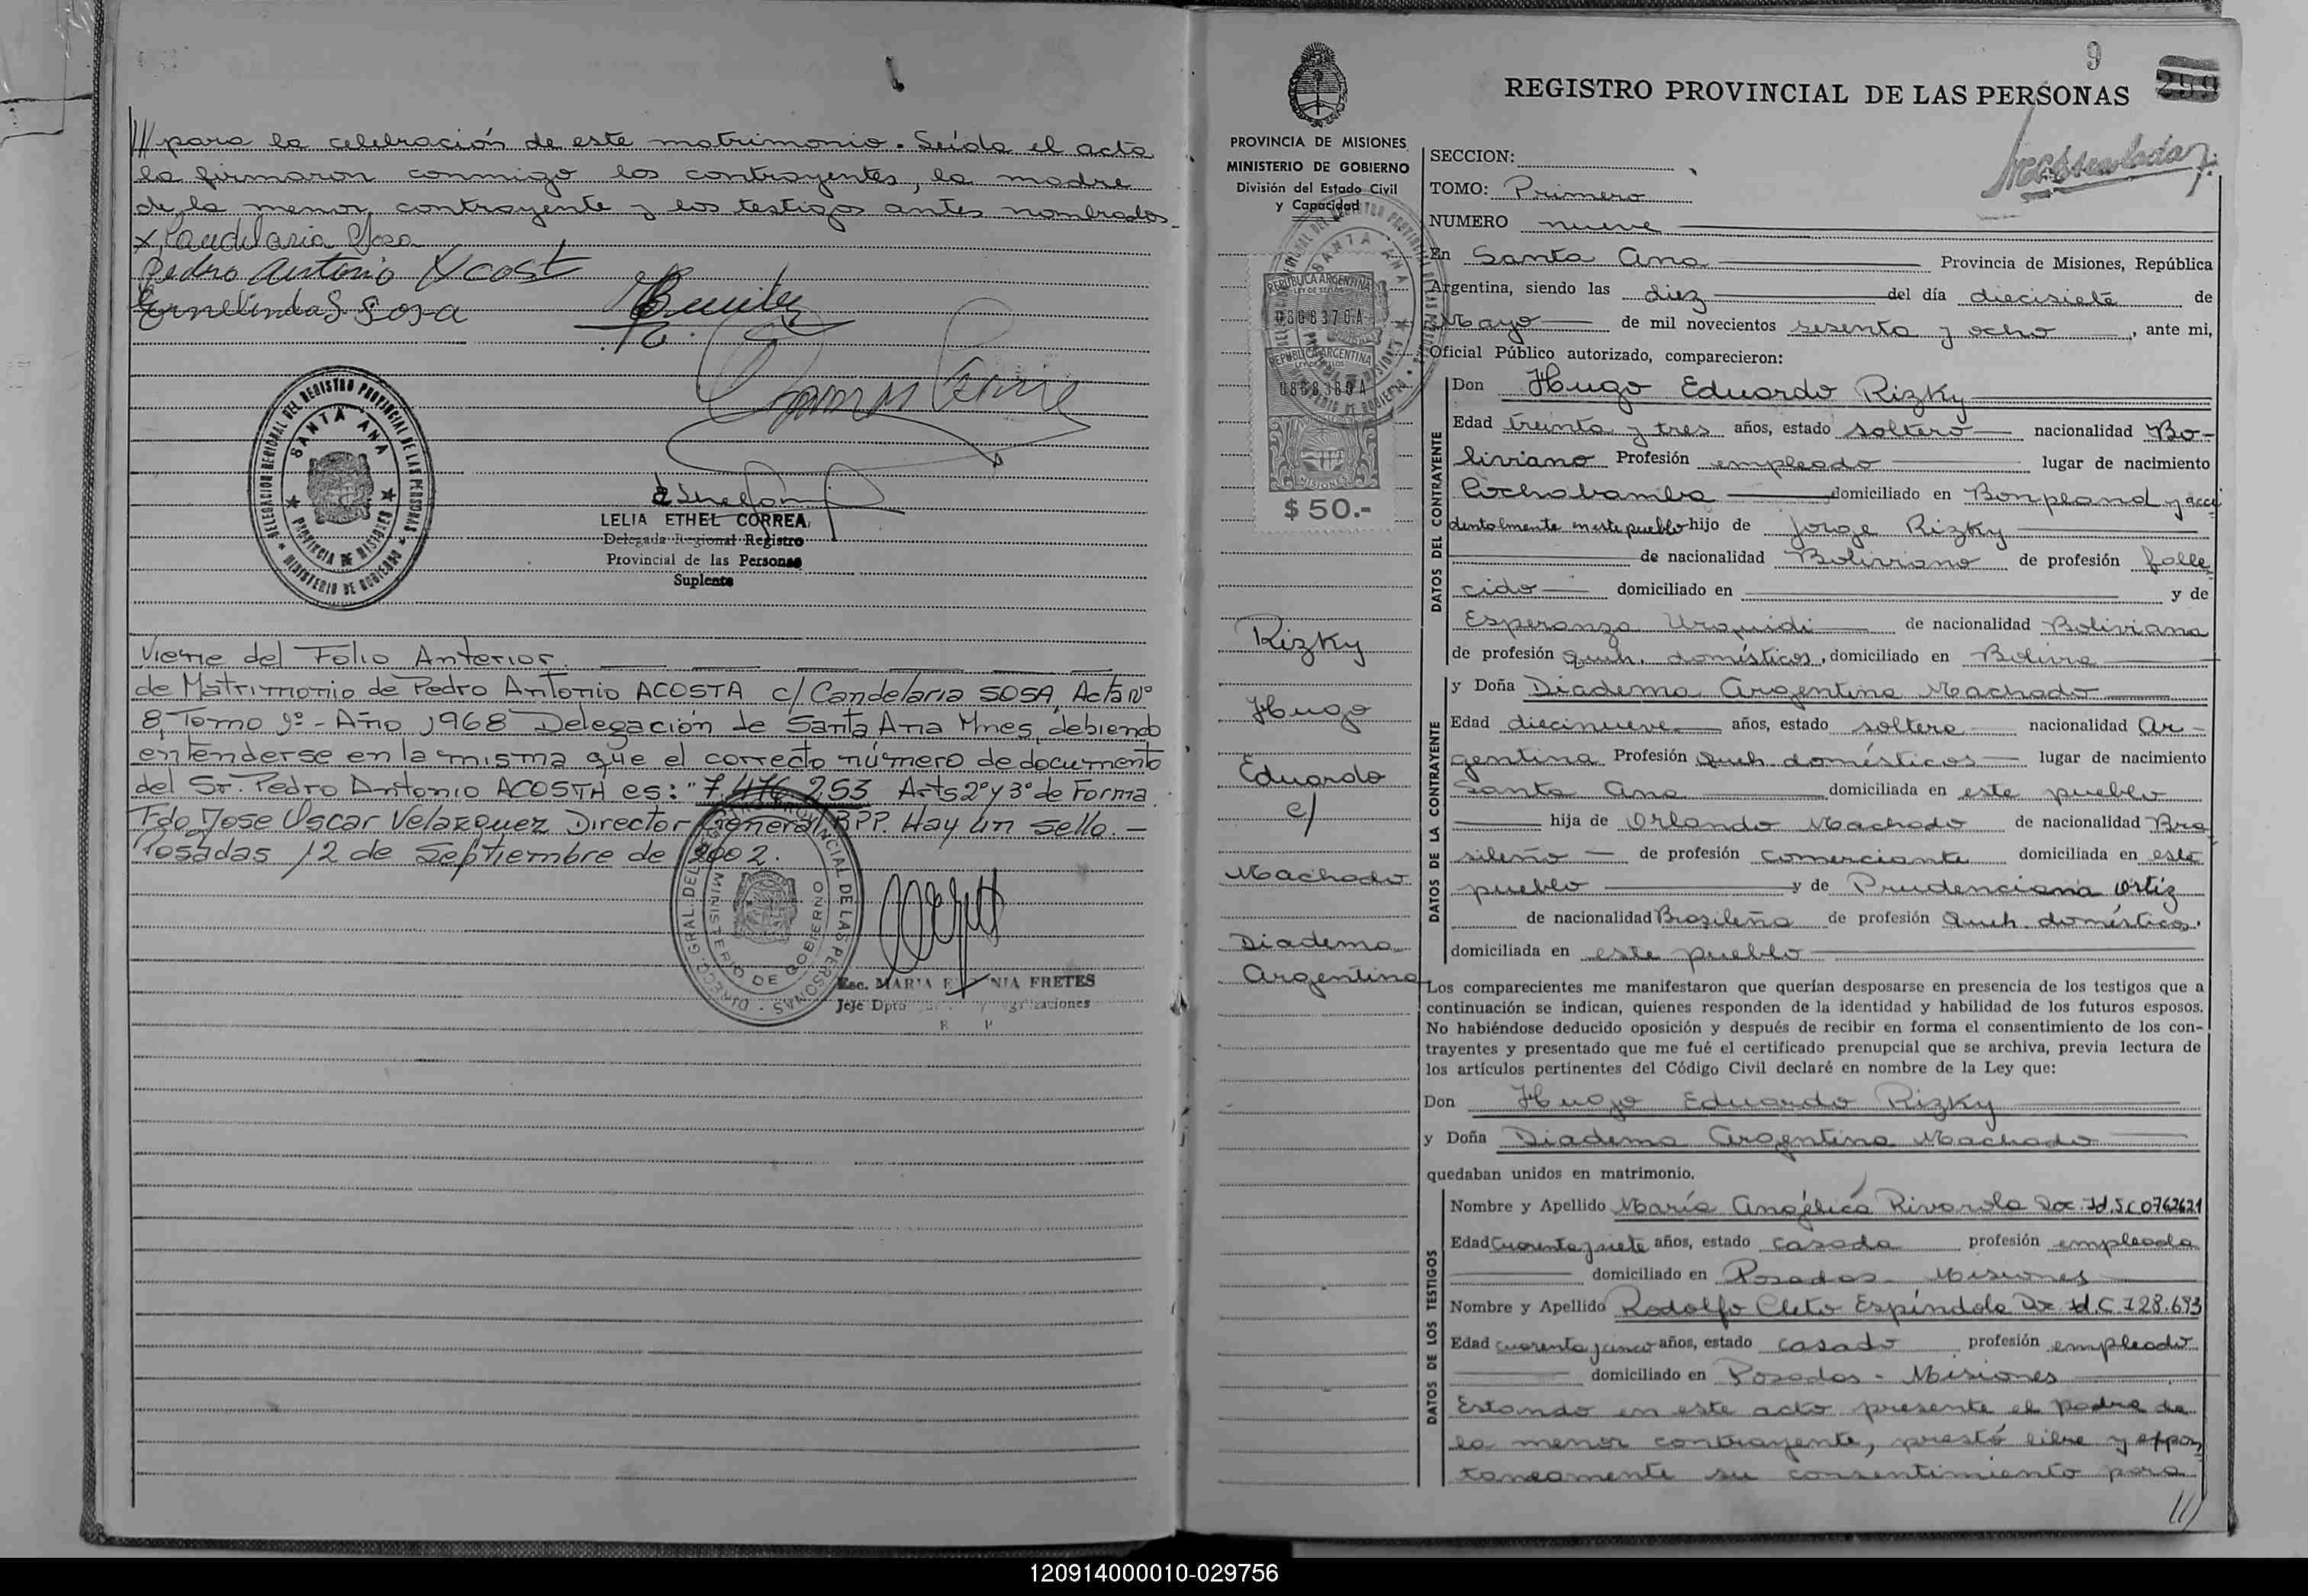 /// para la celebración de este matrimonio. Leída el acta
la firmaron conmigo los contrayentes, la madre
de la menor contrayente y los testigos antes nombrados
x Candelaria Sosa
Pedro Antonio Acosta
Ernelinda S. Sosa
DELEGACION REGIONAL DEL REGISTRO PROVINCIAL DE LAS PERSONAS
SANTA ANA
PROVINCIA DE MISIONES
MINISTERIO DE GOBIERNO
LELIA ETHEL CORREA
Delegada Regional Registro
Provincial de las Personas
Suplente
Viene del Folio Anterior.
de Matrimonio de Pedro Antonio ACOSTA c/ Candelaria SOSA, Acta Nº
8, Tomo 1º - Año 1968 Delegación de Santa Ana Mnes, debiendo
entenderse en la misma que el correcto número de documento
del Sr. Pedro Antonio ACOSTA es: "7.476.253 Arts 2º y 3º de Forma.
Fdo Jose Oscar Velazquez Director General RPP. Hay un sello. -
Posadas 12 de Septiembre de 2002.
DIRECC. GRAL. DEL REG. PROVINCIAL DE LAS PERSONAS
MINISTERIO DE GOBIERNO
Esc. MARIA E NIA FRETES
Jefe Dpto
R P
9
299
REGISTRO PROVINCIAL DE LAS PERSONAS
PROVINCIA DE MISIONES
MINISTERIO DE GOBIERNO
División del Estado Civil
y Capacidad
REPUBLICA ARGENTINA
LEY DE SELLOS
0868370A
REPUBLICA ARGENTINA
LEY DE SELLOS
0868380A
MISIONES
$ 50.-
Rizky
Hugo
Eduardo
c/
Machado
Diadema
Argentina
SECCION:
TOMO: Primero
NUMERO nueve
En Santa Ana Provincia de Misiones, República
Argentina, siendo las diez del día diecisiete de
Mayo de mil novecientos sesenta y ocho, ante mi,
Oficial Público autorizado, comparecieron:
DATOS DEL CONTRAYENTE
Don Hugo Eduardo Rizky
Edad treinta y tres años, estado soltero nacionalidad Bo-
liviano Profesión empleado lugar de nacimiento
Cochabamba domiciliado en Bonpland y acci
dentalmente en este pueblo hijo de Jorge Rizky
de nacionalidad Boliviano de profesión falle
cido domiciliado en y de
Esperanza Urquidi de nacionalidad Boliviana
de profesión Queh. domésticos, domiciliado en Bolivia
DATOS DE LA CONTRAYENTE
y Doña Diadema Argentina Machado
Edad diecinueve años, estado soltera nacionalidad Ar-
gentina Profesión Queh. domésticos lugar de nacimiento
Santa Ana domiciliada en este pueblo
hija de Orlando Machado de nacionalidad Bra
sileño de profesión comerciante domiciliada en este
pueblo y de Prudenciana Ortiz
de nacionalidad Brasileña de profesión Queh. domésticos.
domiciliada en este pueblo
Los comparecientes me manifestaron que querían desposarse en presencia de los testigos que a
continuación se indican, quienes responden de la identidad y habilidad de los futuros esposos.
No habiéndose deducido oposición y después de recibir en forma el consentimiento de los con-
trayentes y presentado que me fué el certificado prenupcial que se archiva, previa lectura de
los artículos pertinentes del Código Civil declaré en nombre de la Ley que:
Don Hugo Eduardo Rizky
y Doña Diadema Argentina Machado
quedaban unidos en matrimonio.
DATOS DE LOS TESTIGOS
Nombre y Apellido María Angélica Rivarola Doc. Id. 5C0762621
Edad Cuarenta y siete años, estado casada profesión empleada
domiciliado en Posadas - Misiones
Nombre y Apellido Rodolfo Cleto Espíndola Doc. Id. C 728.693
Edad cuarenta y cinco años, estado casado profesión empleado
domiciliado en Posadas - Misiones
Estando en este acto presente el padre de
la menor contrayente, prestó libre y espon
taneamente su consentimiento para
///
120914000010-029756